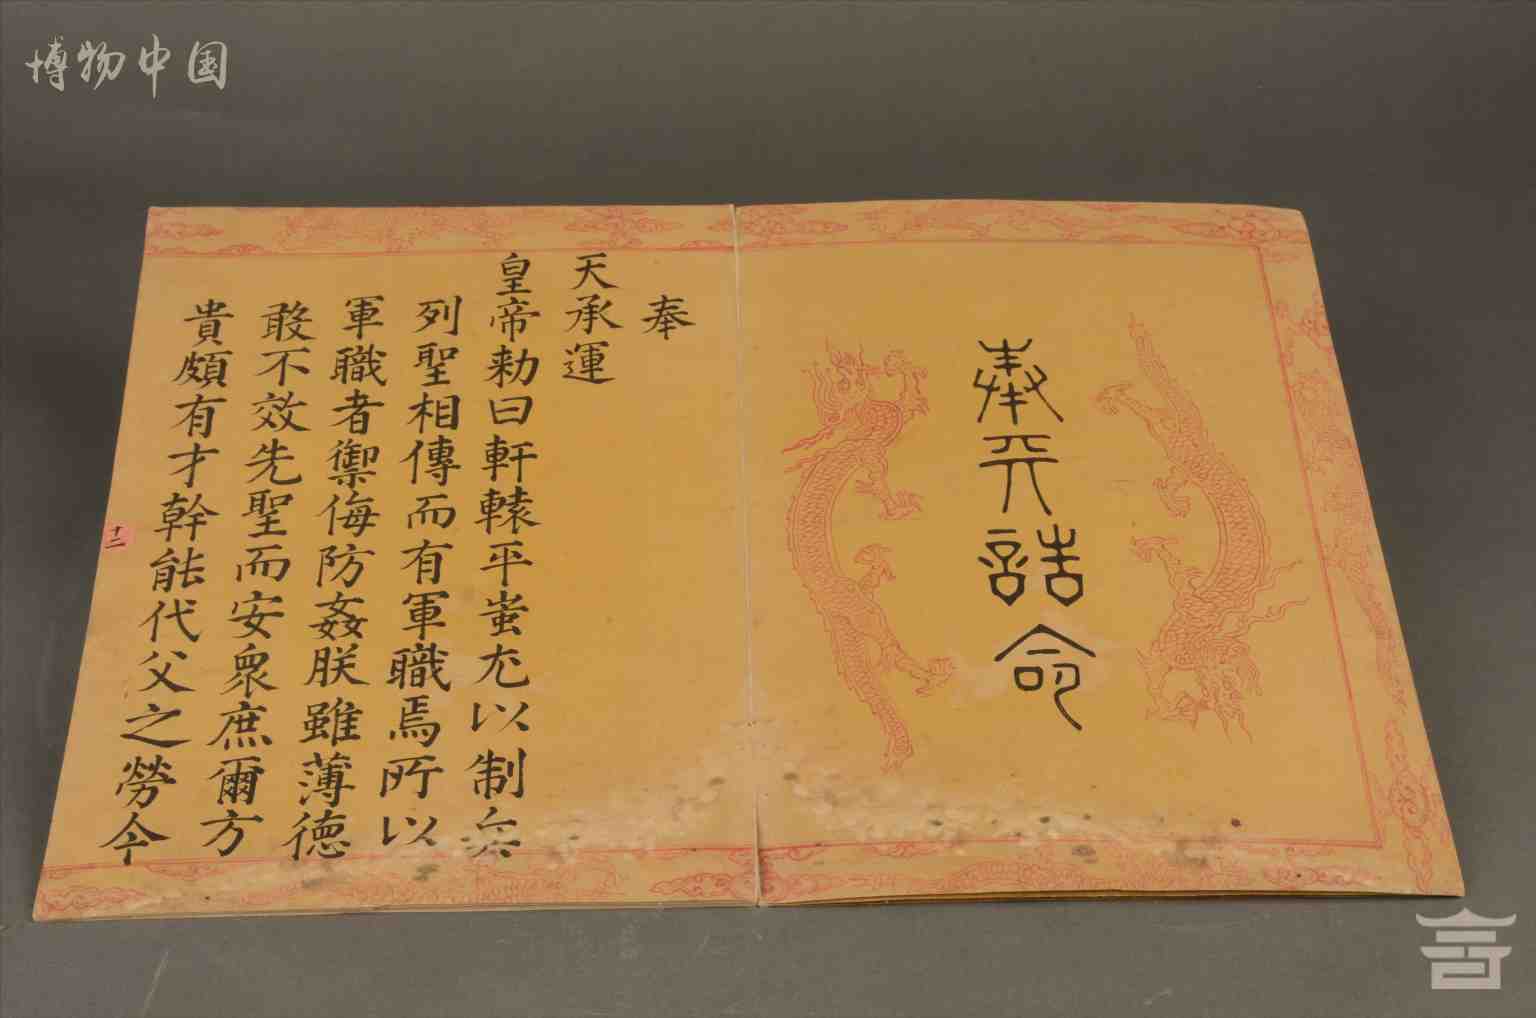 博物中国
奉天誥命
奉
天承運
皇帝勅曰軒轅平蚩尤以制兵
列聖相傳而有軍職焉所以
軍職者禦侮防姦朕雖薄德
敢不效先聖而安衆庶爾方
貴頗有才幹能代父之勞今
十二